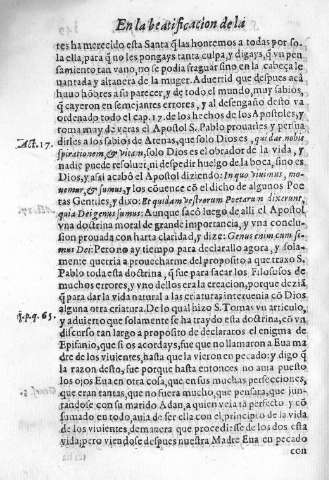 En la beatificacion de la
tes ha merecido esta Santa q̃ las honremos a todas por so-
la ella, para q̃ no les pongays tanta culpa, y digays, q̃ vn pen-
samiento tan vano, no se podia fraguar sino en la cabeça le
uantada y altanera de la muger. Aduertid que despues acà
huuo hõbres a su parecer, y de todo el mundo, muy sabios,
q̃ cayeron en semejantes errores, y al desengaño desto va
ordenado todo el cap. 17. de los hechos de los Apostoles, y
Act. 17.
toma muy de veras el Apostol S. Pablo prouarles y persua
dirles a los sabios de Atenas, que solo Dios es, qui dat nobis
spirationem, & vitam, solo Dios es el otorgador de la vida, y
nadie puede resoluer, ni despedir huelgo de la boca, sino es
Dios, y assi acabò el Apostol diziendo: In quo viuimus, mo-
uemur, & sumus, y los cõuence cõ el dicho de algunos Poe
tas Gentiles, y dixo: Et quidam vestrorum Poetarum dixerunt,
quia Dei genus sumus: Aunque sacò luego de alli el Apostol
vna doctrina moral de grande importancia, y vna conclu-
sion prouada con harta claridad, y dize: Genus enim cum si-
mus Dei: Pero no ay tiempo para declarallo agora, y sola-
mente querria aprouecharme del proposito a que traxo S.
Pablo toda esta doctrina, q̃ fue para sacar los Filosofos de
muchos errores, y vno dellos era la creacion, porque deziã
q̃ para dar la vida natural a las criaturas interuenia cõ Dios
alguna otra criatura. De lo qual hizo S. Tomas vn articulo,
1. p. q. 65.
y aduierto que solamente se ha traydo esta doctrina, cõ vn
discurso tan largo a proposito de declararos el enigma de
Epifanio, que si os acordays, fue que no llamaron a Eua ma
dre de los viuientes, hasta que la vieron en pecado: y digo q̃
la razon desto, fue porque hasta entonces no auia puesto
los ojos Eua en otra cosa, que en sus muchas perfecciones,
que eran tantas, que no fuera mucho, que pensara, que jun-
tandose con su marido Adan, a quien veia tã perfecto y cõ
sumado en todo, auia de ser ella con el, principio de la vida
de los viuientes, de manera que procediesse de los dos esta
vida, pero viendose despues nuestra Madre Eua en pecado
con